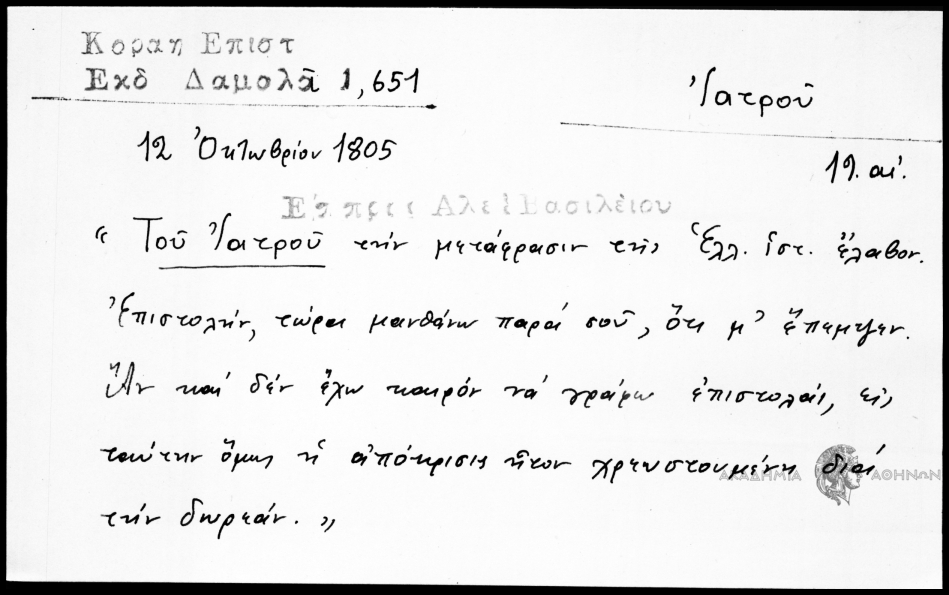 Κοραη Επιστ
Εκδ Δαμαλᾶ 1,651
Ἰατροῦ
12 Ὀκτωβρίου 1805
19. αἰ.
Επ πρὸς Αλεξ Βασιλείου
« Τοῦ Ἰατροῦ τὴν μετάφρασιν τῆς Ἑλλ. ἱστ. ἔλαβον.
Ἐπιστολήν, τώρα μανθάνω παρὰ σοῦ, ὅτι μ' ἔπεμψεν.
Ἂν καὶ δὲν ἔχω καιρὸν νὰ γράφω ἐπιστολάς, εἰς
ταύτην ὅμως ἡ ἀπόκρισις ἦτον χρεωστουμένη διὰ
τὴν δωρεάν. »
ΑΚΑΔΗΜΙΑ ΑΘΗΝΩΝ